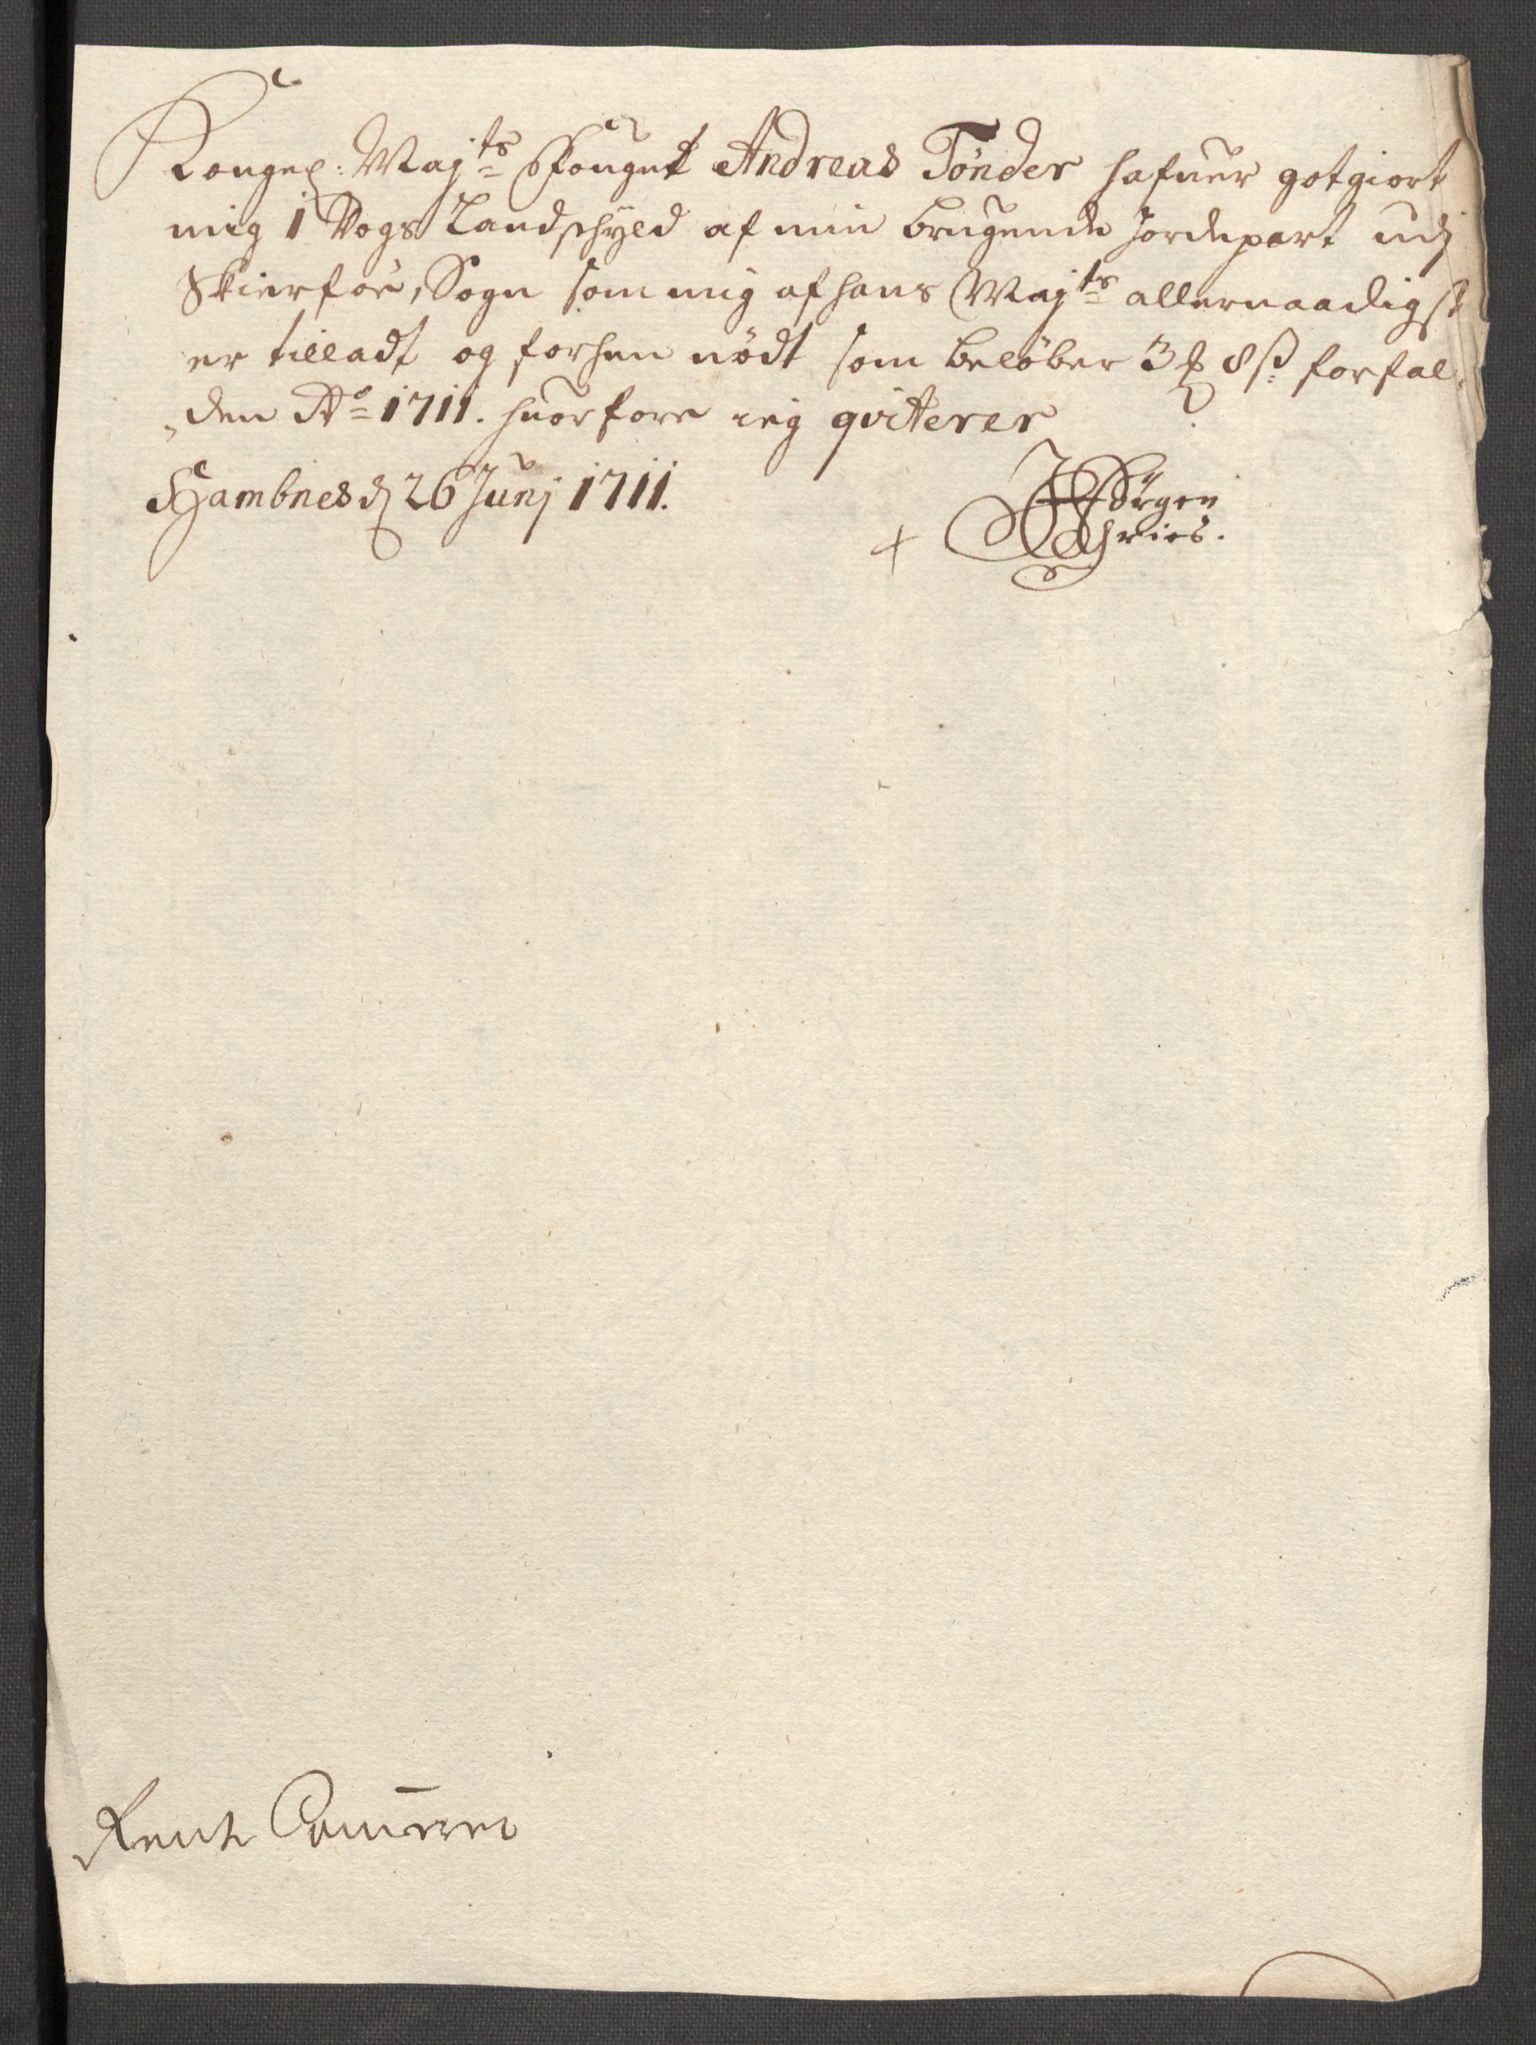 Kongel: Maj:ts Fouget Andreas Tønder hafuer gotgiort
mig 1 Vogs Landschyld af min brugende Jordepart udj
Skierføe, Sogn som mig af hans Maj:ts allernaadigst
er tilladt og forhen nödt som beløber 3 8 s: forfal-
den Ao 1711. huorfore ieg qviterer
Hambnes d 26 Junj 1711.
Sørgen
hries.
Rente Cammeret